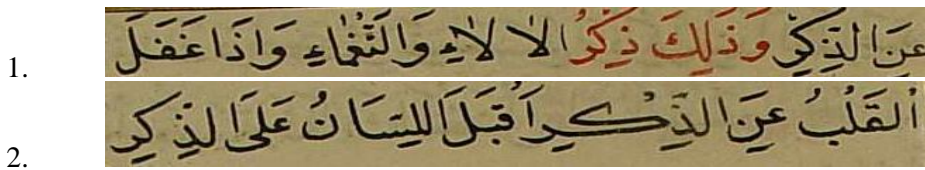 1. عَنِ الذِّكْرِ وَذَلِكَ ذِكْرُ الْاٰلَاءِ وَالنَّعْمَاءِ وَاِذَا غَفَلَ
2. الْقَلْبُ عَنِ الذِّكْرِ اَقْبَلَ اللِّسَانُ عَلَى الذِّكْرِ